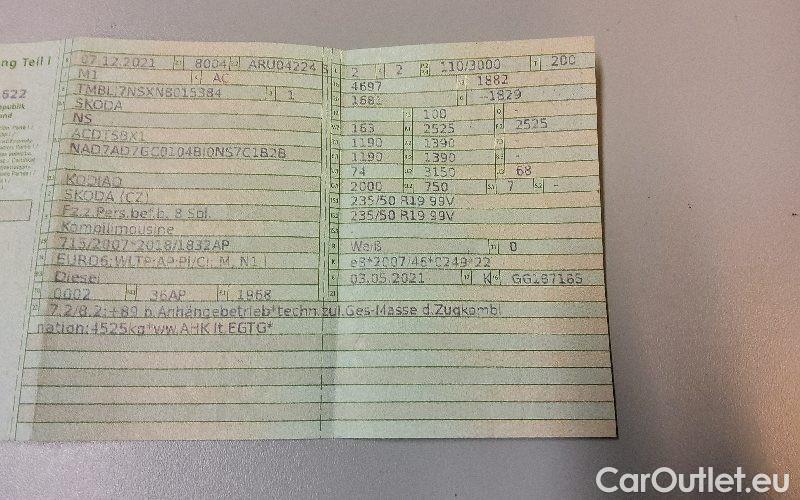 ng Teil I
622
publik
07.12.2021 8004 ARU04224 5
M1 AC
TMBLJ7NSXN8015384 1
SKODA
NS
ACDTSBX1
NAD7AD7GC0104BI0NS7C1B2B
KODIAQ
SKODA (CZ)
Fz.z.Pers.bef.b. 8 Spl.
Kombilimousine
715/2007*2018/1832AP
EURO6;WLTP;AP;PI/CI; M, N1 I
Diesel
0002 36AP 1968
7.2/8.2:+89 b.Anhängebetrieb*techn.zul.Ges-Masse d.Zugkombi
nation:4525kg*ww.AHK lt.EGTG*
2 2 110/3000 200
4697 1882
1681 -1829
100 -
163 2525 2525
1190 1390 -
1190 1390 -
74 3150 68
2000 750 7 -
235/50 R19 99V
235/50 R19 99V
Weiß 0
e8*2007/46*0249*22
03.05.2021 K GG187165
CarOutlet.eu